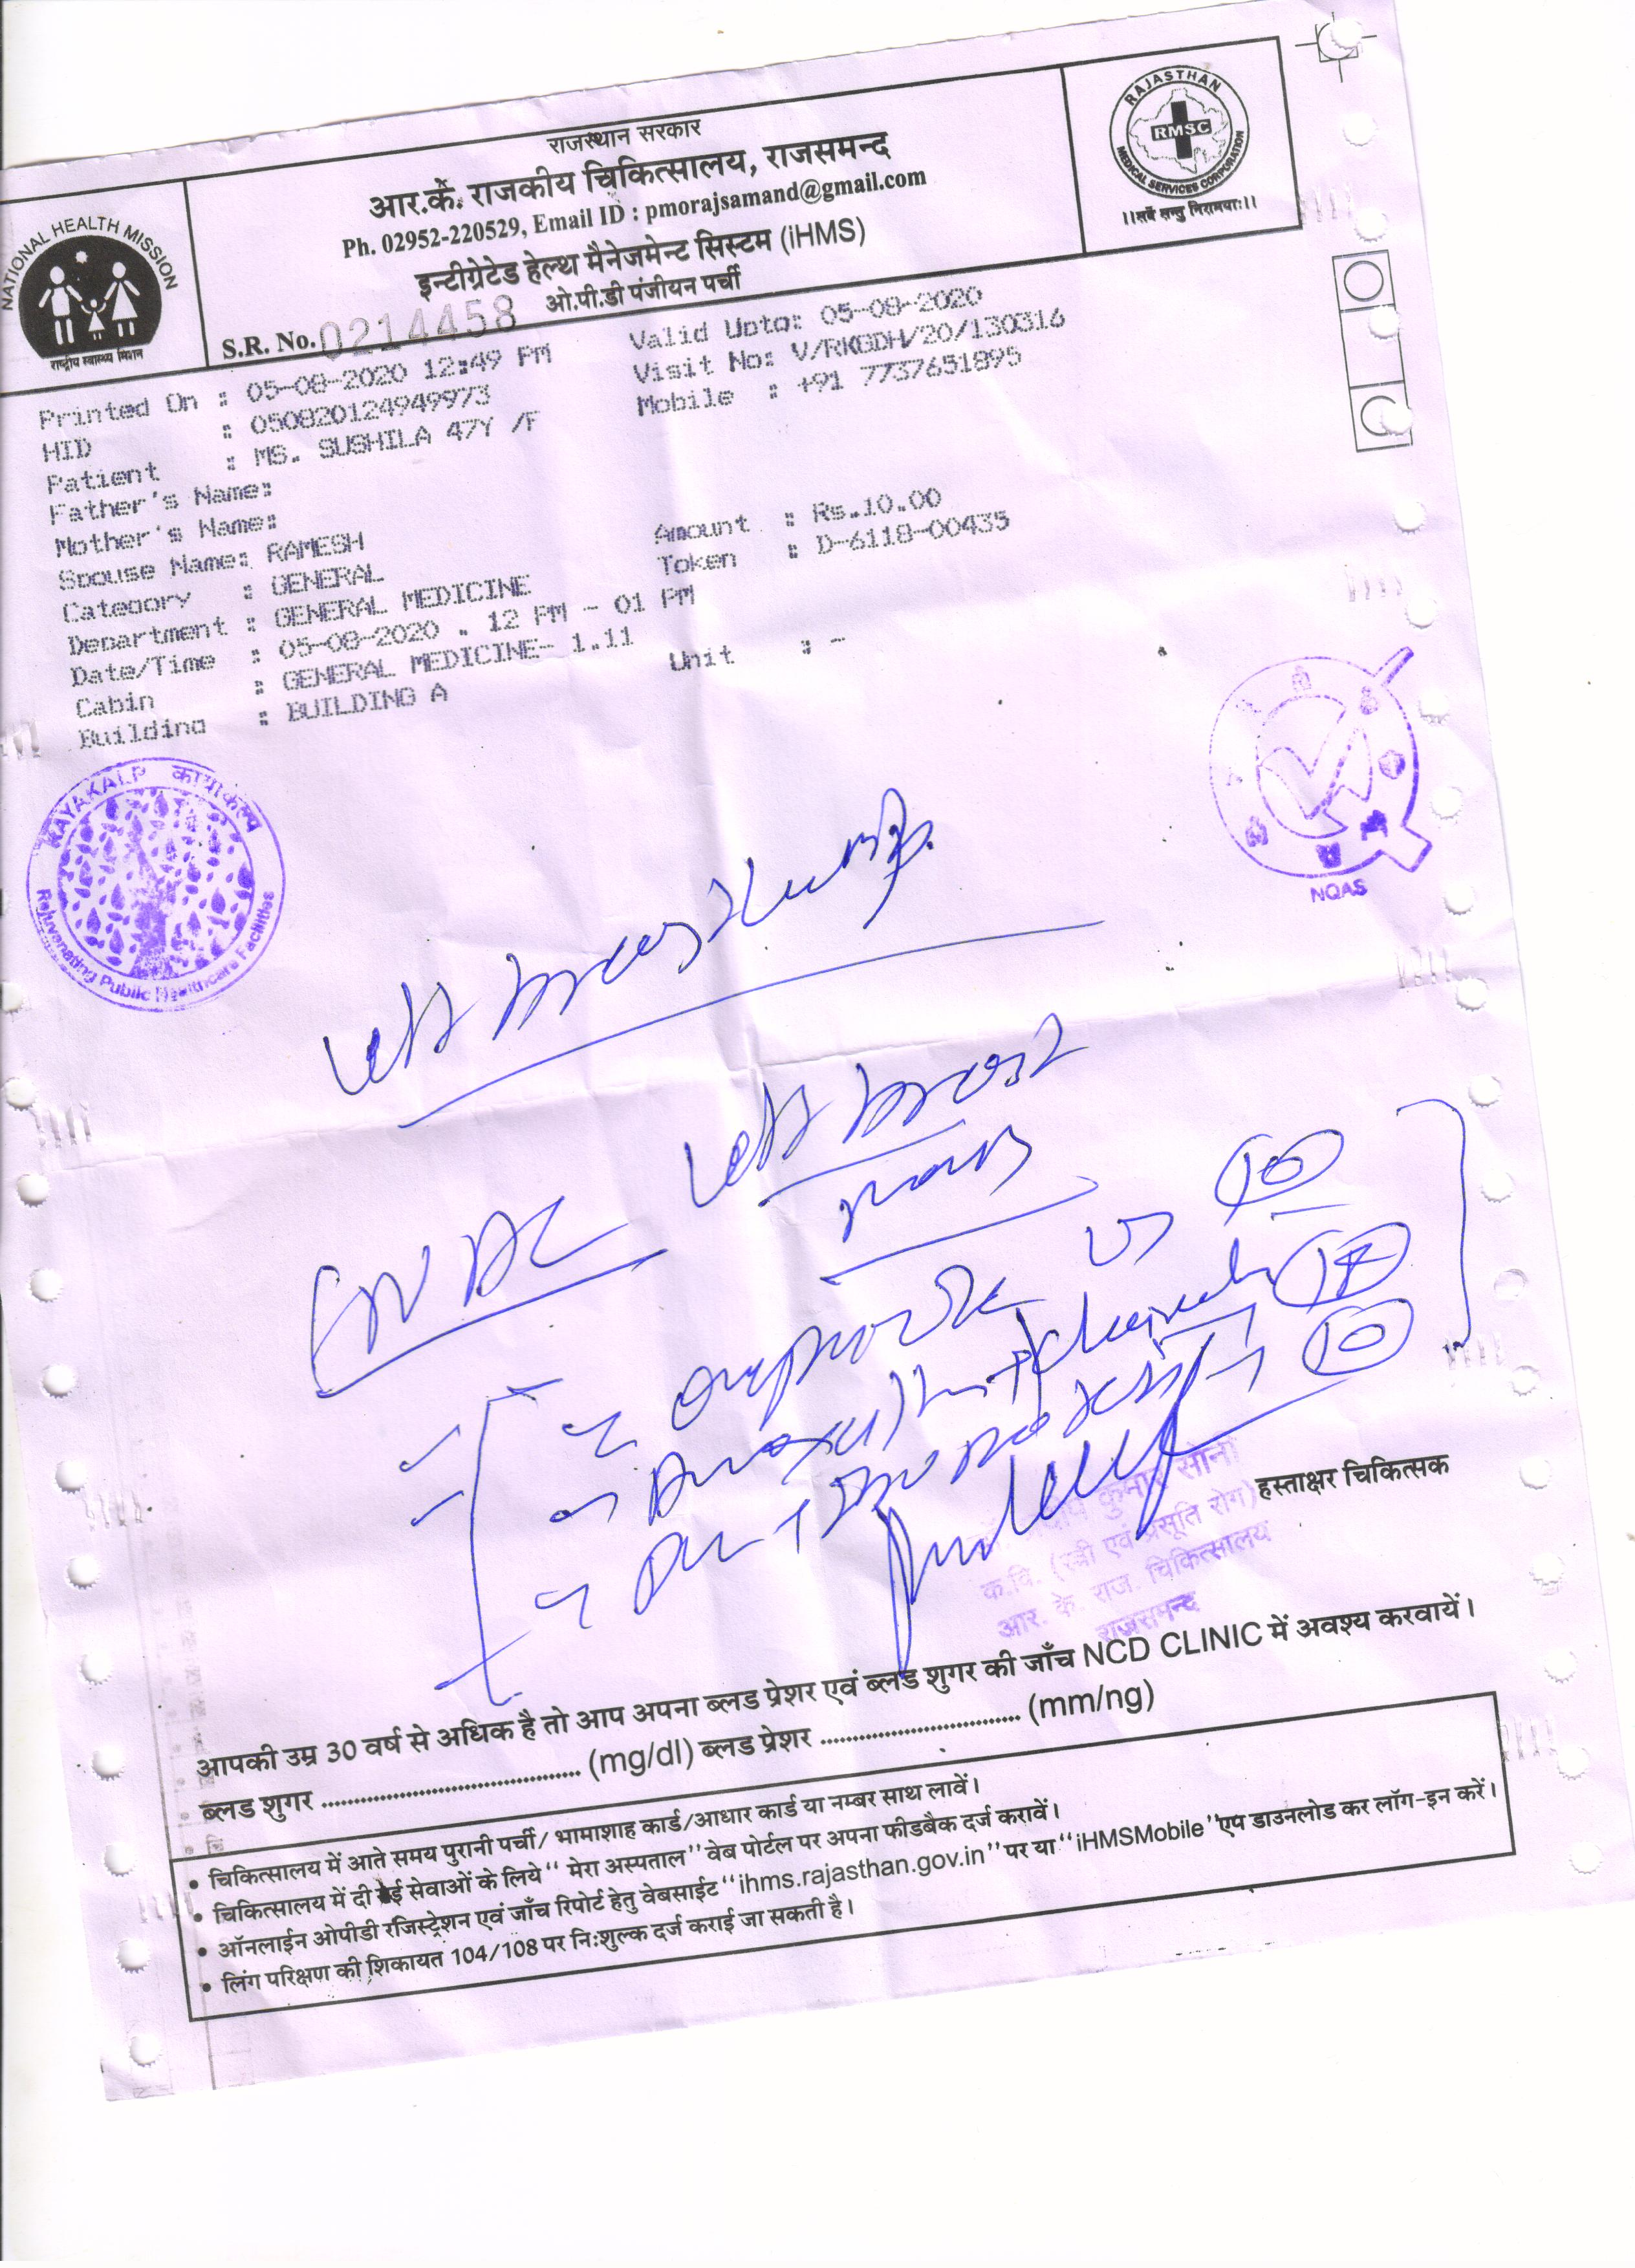 राजस्थान सरकार
आर.के. राजकीय चिकित्सालय, राजसमन्द
Ph. 02952-220529, Email ID : pmorajsamand@gmail.com
इन्टीग्रेटेड हेल्थ मैनेजमेन्ट सिस्टम (iHMS)
ओ.पी.डी पंजीयन पर्ची
NATIONAL HEALTH MISSION
राष्ट्रीय स्वास्थ्य मिशन
RAJASTHAN
RMSC
MEDICAL SERVICES CORPORATION
।।सर्वे सन्तु निरामयाः।।
S.R. No. 0214458
Printed On : 05-08-2020 12:49 PM Valid Upto: 05-08-2020
HID : 050820124949973 Visit No: V/RKGDH/20/130316
Patient : MS. SUSHILA 47Y /F Mobile : +91 7737651895
Father's Name:
Mother's Name:
Spouse Name: RAMESH Amount : Rs.10.00
Category : GENERAL Token : D-6118-00435
Department : GENERAL MEDICINE
Date/Time : 05-08-2020 . 12 PM - 01 PM
Cabin : GENERAL MEDICINE- 1.11 Unit : -
Building : BUILDING A
KAYAKALP कायाकल्प
Rejuvenating Public Healthcare Facilities
NQAS
left breast
left breast
FNAC
कुमार सोनी
क.वि. (स्त्री एवं प्रसूति रोग)
आर. के. राज. चिकित्सालय
राजसमन्द
हस्ताक्षर चिकित्सक
आपकी उम्र 30 वर्ष से अधिक है तो आप अपना ब्लड प्रेशर एवं ब्लड शुगर की जाँच NCD CLINIC में अवश्य करवायें।
ब्लड शुगर ........................................ (mg/dl) ब्लड प्रेशर ................................ (mm/ng)
• चिकित्सालय में आते समय पुरानी पर्ची/ भामाशाह कार्ड/आधार कार्ड या नम्बर साथ लावें।
• चिकित्सालय में दी गई सेवाओं के लिये "मेरा अस्पताल" वेब पोर्टल पर अपना फीडबैक दर्ज करावें।
• ऑनलाईन ओपीडी रजिस्ट्रेशन एवं जाँच रिपोर्ट हेतु वेबसाईट "ihms.rajasthan.gov.in" पर या "iHMSMobile" एप डाउनलोड कर लॉग-इन करें।
• लिंग परिक्षण की शिकायत 104/108 पर निःशुल्क दर्ज कराई जा सकती है।